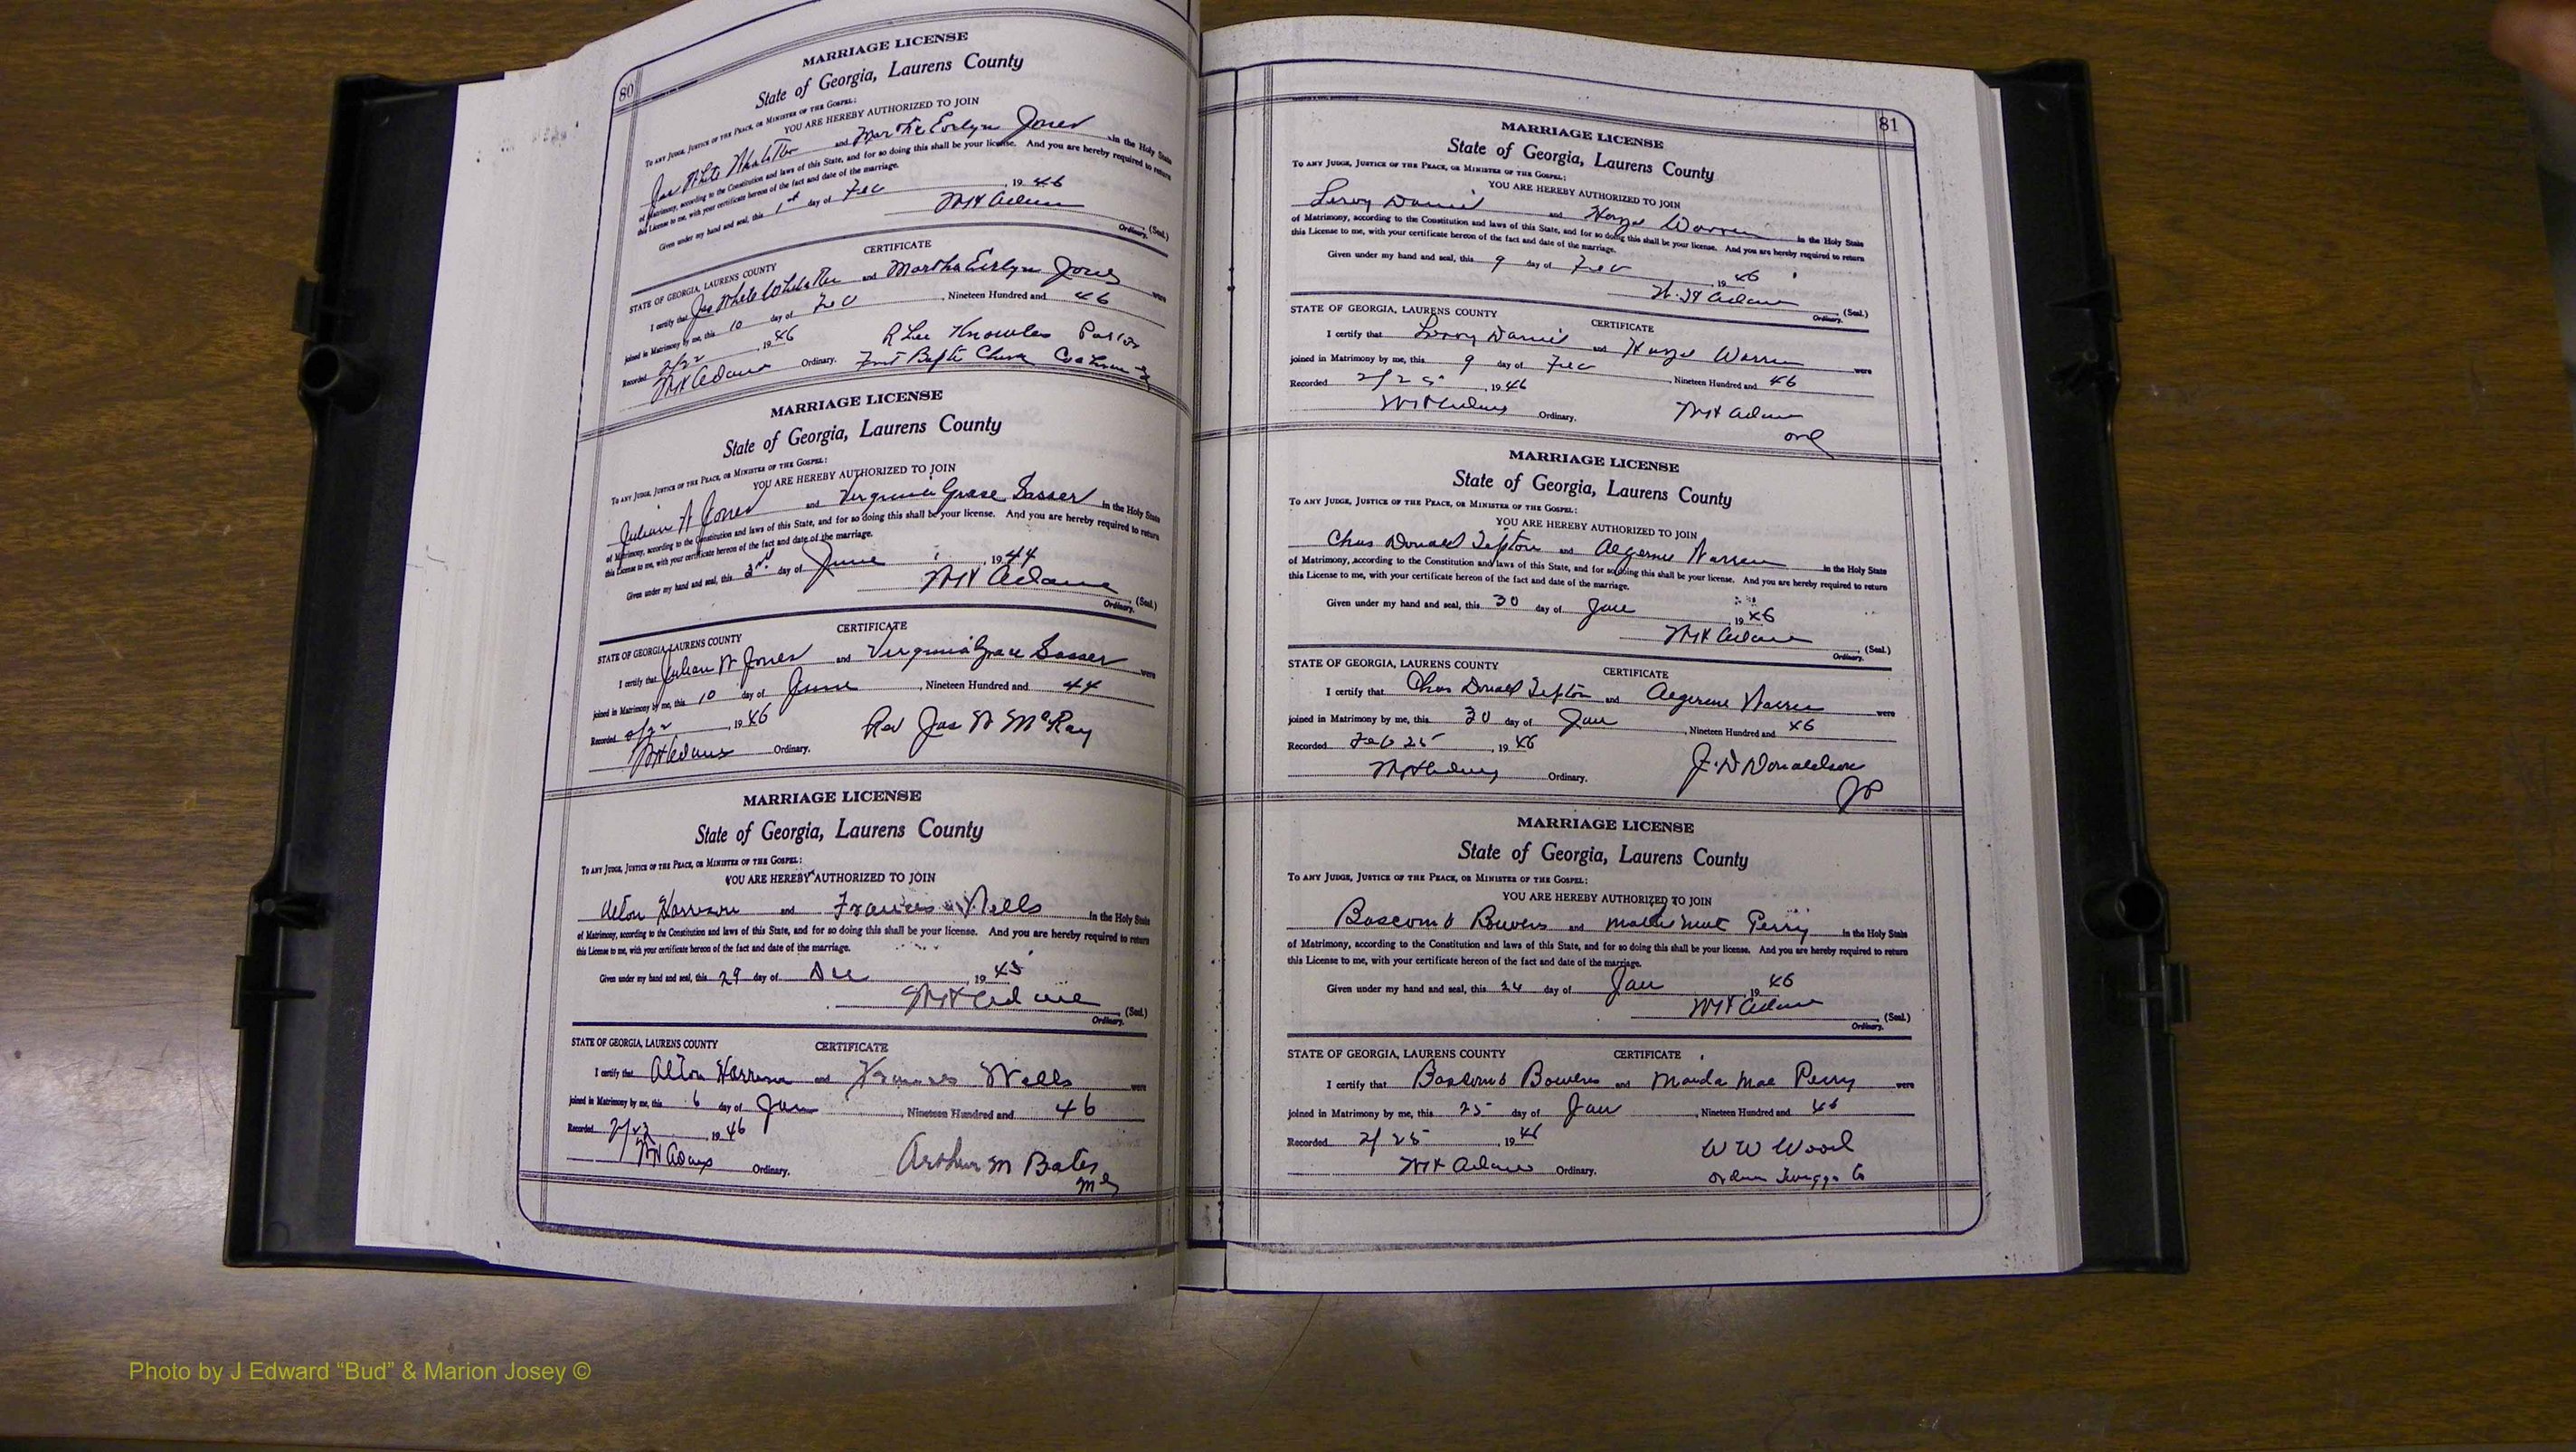 80
MARRIAGE LICENSE
State of Georgia, Laurens County
To any Judge, Justice of the Peace, or Minister of the Gospel:
YOU ARE HEREBY AUTHORIZED TO JOIN
and Martha Evelyn Jones in the Holy State
of Matrimony, according to the Constitution and laws of this State, and for so doing this shall be your license. And you are hereby required to return
this License to me, with your certificate hereon of the fact and date of the marriage.
Given under my hand and seal, this 1st day of Feb, 1946
WH Adams (Seal.)
Ordinary.
CERTIFICATE
STATE OF GEORGIA, LAURENS COUNTY
I certify that and Martha Evelyn Jones were
joined in Matrimony by me, this 10 day of Feb, Nineteen Hundred and 46
Recorded 2/22, 1946 R Lee Knowles Pastor
WH Adams Ordinary. First Baptist Church Cochran
MARRIAGE LICENSE
State of Georgia, Laurens County
To any Judge, Justice of the Peace, or Minister of the Gospel:
YOU ARE HEREBY AUTHORIZED TO JOIN
Julian Jones and Virginia Grace Sasser in the Holy State
of Matrimony, according to the Constitution and laws of this State, and for so doing this shall be your license. And you are hereby required to return
this License to me, with your certificate hereon of the fact and date of the marriage.
Given under my hand and seal, this 3rd day of June, 1944
WH Adams (Seal.)
Ordinary.
CERTIFICATE
STATE OF GEORGIA, LAURENS COUNTY
I certify that Julian W Jones and Virginia Grace Sasser were
joined in Matrimony by me, this 10 day of June, Nineteen Hundred and 44
Recorded 1946 Rev Jas McRay
WH Adams Ordinary.
MARRIAGE LICENSE
State of Georgia, Laurens County
To any Judge, Justice of the Peace, or Minister of the Gospel:
YOU ARE HEREBY AUTHORIZED TO JOIN
Alton Harrison and Frances Wells in the Holy State
of Matrimony, according to the Constitution and laws of this State, and for so doing this shall be your license. And you are hereby required to return
this License to me, with your certificate hereon of the fact and date of the marriage.
Given under my hand and seal, this 29 day of Dec, 1945
WH Adams (Seal.)
Ordinary.
CERTIFICATE
STATE OF GEORGIA, LAURENS COUNTY
I certify that Alton Harrison and Frances Wells were
joined in Matrimony by me, this 6 day of Jan, Nineteen Hundred and 46
Recorded 1946
WH Adams Ordinary. Arthur M Bates
MG
81
MARRIAGE LICENSE
State of Georgia, Laurens County
To any Judge, Justice of the Peace, or Minister of the Gospel:
YOU ARE HEREBY AUTHORIZED TO JOIN
Leroy Daniel and Hazel Warren in the Holy State
of Matrimony, according to the Constitution and laws of this State, and for so doing this shall be your license. And you are hereby required to return
this License to me, with your certificate hereon of the fact and date of the marriage.
Given under my hand and seal, this 9 day of Feb 1946
W.H Adams (Seal.)
Ordinary.
STATE OF GEORGIA, LAURENS COUNTY CERTIFICATE
I certify that Leroy Daniel and Hazel Warren were
joined in Matrimony by me, this 9 day of Feb, Nineteen Hundred and 46
Recorded 2/25, 1946
WH Adams Ordinary. WH Adams
Ord
MARRIAGE LICENSE
State of Georgia, Laurens County
To any Judge, Justice of the Peace, or Minister of the Gospel:
YOU ARE HEREBY AUTHORIZED TO JOIN
Chas Donald and Algerene Warren in the Holy State
of Matrimony, according to the Constitution and laws of this State, and for so doing this shall be your license. And you are hereby required to return
this License to me, with your certificate hereon of the fact and date of the marriage.
Given under my hand and seal, this 30 day of Jan 1946
WH Adams (Seal.)
Ordinary.
STATE OF GEORGIA, LAURENS COUNTY CERTIFICATE
I certify that Chas Donald and Algerene Warren were
joined in Matrimony by me, this 30 day of Jan, Nineteen Hundred and 46
Recorded Feb 25, 1946
WH Adams Ordinary. J. D Donaldson
JP
MARRIAGE LICENSE
State of Georgia, Laurens County
To any Judge, Justice of the Peace, or Minister of the Gospel:
YOU ARE HEREBY AUTHORIZED TO JOIN
Bascomb Bowers and Perry in the Holy State
of Matrimony, according to the Constitution and laws of this State, and for so doing this shall be your license. And you are hereby required to return
this License to me, with your certificate hereon of the fact and date of the marriage.
Given under my hand and seal, this 24 day of Jan 1946
WH Adams (Seal.)
Ordinary.
STATE OF GEORGIA, LAURENS COUNTY CERTIFICATE
I certify that Bascomb Bowers and Mae Perry were
joined in Matrimony by me, this 25 day of Jan, Nineteen Hundred and 46
Recorded 2/25, 1946 W W Wood
WH Adams Ordinary. Twiggs Co
Photo by J Edward “Bud” & Marion Josey ©